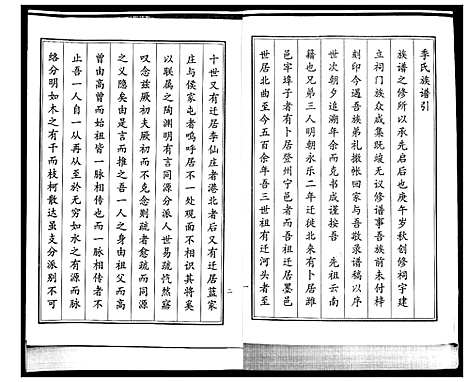 季氏族谱引
族谱之修所以承先启后也庚午岁秋创修祠宇建
立祠门族众咸集既竣无议修谱事吾族前未付梓
刻印今遇吾族弟礼撤帐回家与吾敬录谱稿以溯
世次朝夕追溯年余而克书成谨按吾 先祖云南
籍也兄弟三人明朝永乐二年迁徙北来有卜居潍
邑军埠子者有卜居登州宁邑者而吾祖迁居墨邑
世居北曲至今五百余年吾三世祖有迁河头者至
一
二
十世又有迁居李仙庄者港北者后又有迁居蓝家
庄与侯家屯者呜呼居日远而不相识其将奚
以联属之陶渊明有言同源分派人世易疏慨然寤
叹念兹厥初夫厥初而不克念则疏者愈疏而同源
之义隐矣由是言而推之吾一人之身由祖父而高
曾由高曾而始祖皆一脉相传也一脉相传者不
止吾一人自一从再从至於无穷如水之有源而脉
络分明如木之有干而枝柯散达虽支分派别不可